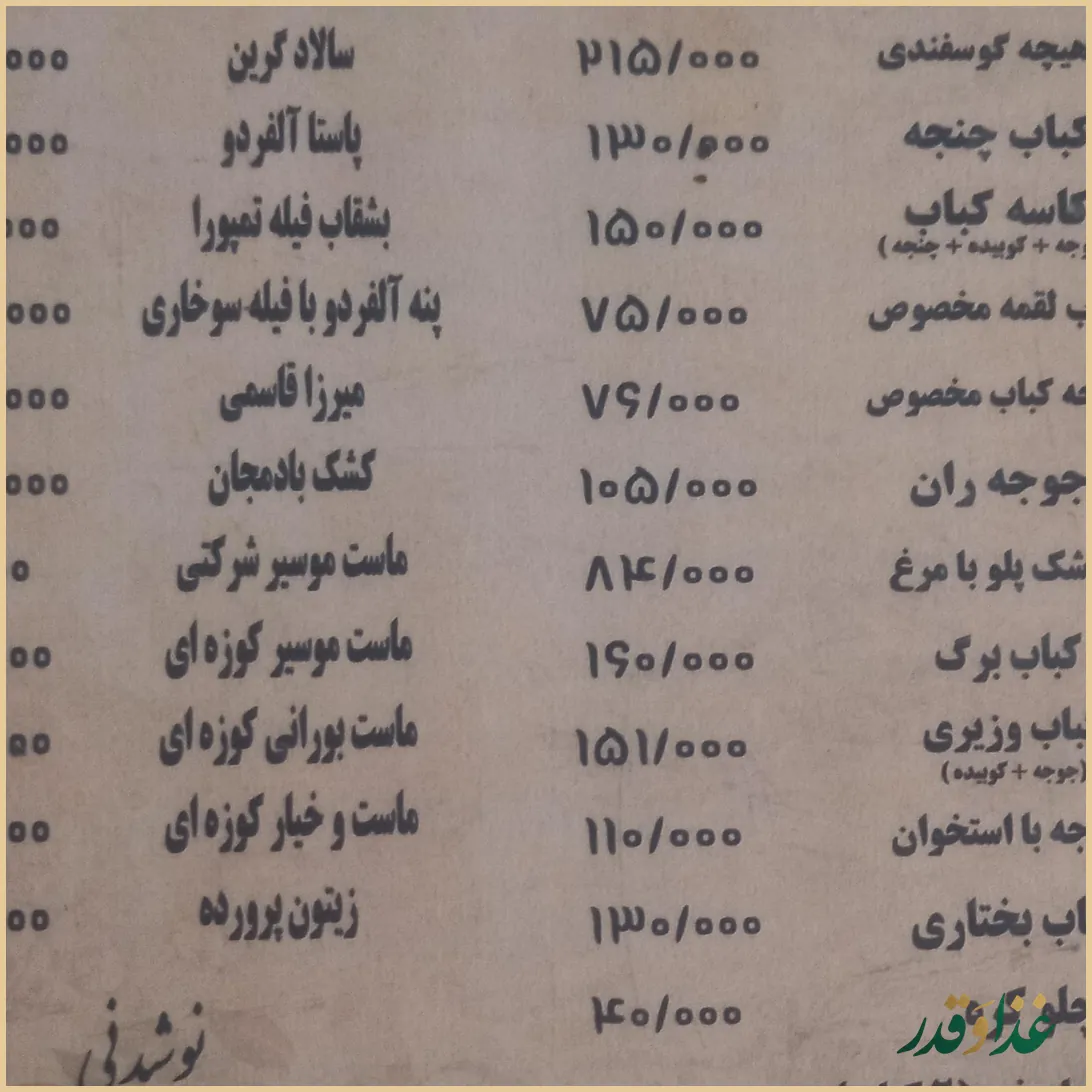 هیچه گوسفندی ۲۱۵/۰۰۰
کباب چنجه ۱۳۰/۰۰۰
کاسه کباب ۱۵۰/۰۰۰
وجه + کوبیده + چنجه )
ب لقمه مخصوص ۷۵/۰۰۰
جه کباب مخصوص ۷۶/۰۰۰
جوجه ران ۱۰۵/۰۰۰
شک پلو با مرغ ۸۴/۰۰۰
کباب برگ ۱۶۰/۰۰۰
باب وزیری ۱۵۱/۰۰۰
(جوجه + کوبیده )
جه با استخوان ۱۱۰/۰۰۰
اب بختاری ۱۳۰/۰۰۰
چلو کره ۴۰/۰۰۰
سالاد گرین ۰۰۰
پاستا آلفردو ۰۰۰
بشقاب فیله تمپورا ۰۰۰
پنه آلفردو با فیله سوخاری ۰۰۰
میرزا قاسمی ۰۰۰
کشک بادمجان ۰۰۰
ماست موسیر شرکتی ۰
ماست موسیر کوزه ای ۰۰
ماست بورانی کوزه ای ۰۰
ماست و خیار کوزه ای ۰۰
زیتون پرورده ۰۰
نوشدنی
غذا و قدر